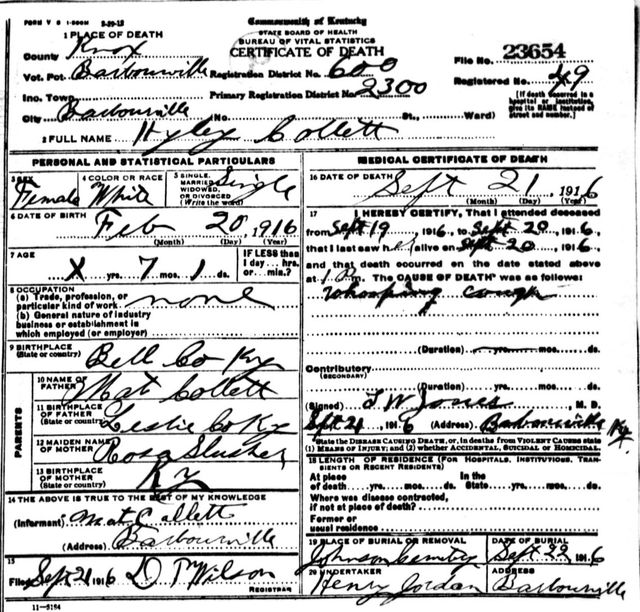 FORM V S 1-500M 3-29-13
Commonwealth of Kentucky
STATE BOARD OF HEALTH
BUREAU OF VITAL STATISTICS
CERTIFICATE OF DEATH
1 PLACE OF DEATH
County Knox
Vot. Pct. Barbourville Registration District No. 600
File No. 23654
Inc. Town Primary Registration District No. 2300
Registered No. 49
City Barbourville (No. St., Ward)
[If death occurred in a hospital or institution, give its NAME instead of street and number.]
2 FULL NAME Hyley Collett
PERSONAL AND STATISTICAL PARTICULARS
3 SEX Female
4 COLOR OR RACE White
5 SINGLE, MARRIED, WIDOWED, OR DIVORCED (Write the word) Single
6 DATE OF BIRTH Feb 20, 1916
(Month) (Day) (Year)
7 AGE X yrs. 7 mos. 1 ds.
IF LESS than 1 day... hrs. or min.?
8 OCCUPATION
(a) Trade, profession, or particular kind of work none
(b) General nature of industry business or establishment in which employed (or employer)
9 BIRTHPLACE (State or country) Bell Co Ky
PARENTS
10 NAME OF FATHER Mat Collett
11 BIRTHPLACE OF FATHER (State or country) Leslie Co Ky
12 MAIDEN NAME OF MOTHER Rosa Slusher
13 BIRTHPLACE OF MOTHER (State or country) Ky
14 THE ABOVE IS TRUE TO THE BEST OF MY KNOWLEDGE
(Informant) Mat Collett
(Address) Barbourville
15
Filed Sept 21 1916 D T Wilson
REGISTRAR
11-5194
MEDICAL CERTIFICATE OF DEATH
16 DATE OF DEATH Sept 21, 1916
(Month) (Day) (Year)
17 I HEREBY CERTIFY, That I attended deceased
from Sept 19 1916, to Sept 20, 1916,
that I last saw her alive on Sept 20, 1916,
and that death occurred on the date stated above
at 1 P m. The CAUSE OF DEATH* was as follows:
Whooping cough
(Duration) yrs. mos. ds.
Contributory
(SECONDARY)
(Duration) yrs. mos. ds.
(Signed) J W Jones, M. D.
Sept 21, 1916 (Address) Barbourville Ky.
*State the DISEASE CAUSING DEATH, or, in deaths from VIOLENT CAUSES state
(1) MEANS OF INJURY; and (2) whether ACCIDENTAL, SUICIDAL or HOMICIDAL.
18 LENGTH OF RESIDENCE (FOR HOSPITALS, INSTITUTIONS, TRANSIENTS OR RECENT RESIDENTS)
At place of death yrs. mos. ds. In the State yrs. mos. ds.
Where was disease contracted,
if not at place of death?
Former or
usual residence
19 PLACE OF BURIAL OR REMOVAL Johnson Cemetry
DATE OF BURIAL Sept 22 1916
20 UNDERTAKER Henry Jordan
ADDRESS Barbourville